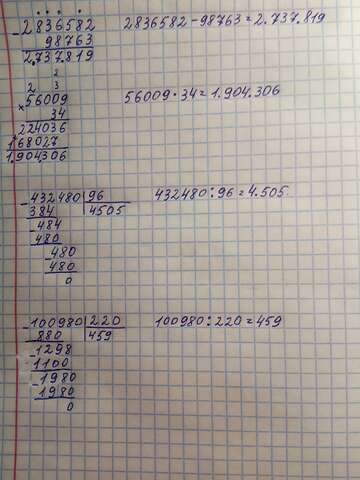 2836582 2836582-98763=2.737.819
- 98763
2.737.819
2
2 3
56009 56009·34=1.904.306
× 34
224036
168027
1.904.306
-432480|96 432480:96=4.505
384 4505
-484
480
-480
480
0
-100980|220 100980:220=459
880 459
-1298
1100
-1980
1980
0